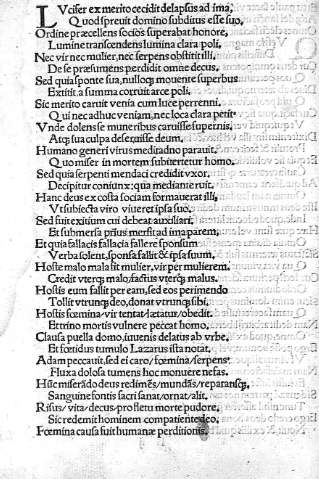 LVcifer ex merito cecidit delapsus ad ima,
Quod spreuit domino subditus esse suo,
Ordine præcellens socios superabat honore,
Lumine transcendens lumina clara poli,
Nec vir nec mulier, nec serpens obstitit illi,
De se præsumens perdidit omne decus,
Sed quia sponte sua, nulloq; mouente superbus
Extitit, a summa corruit arce poli.
Sic merito caruit venia cum luce perrenni,
Qui nec adhuc veniam, nec loca clara petit.
Vnde dolens se muneribus caruisse supernis,
Atq; sua culpa deseruisse deum,
Humano generi virus meditando parauit,
Quo miser in mortem subuerteretur homo.
Sed quia serpenti mendaci credidit vxor,
Decipitur coniunx: qua mediante ruit.
Hanc deus ex costa sociam formauerat illi,
Vt subiecta viro viueret ipsa suo.
Sed fuit exitium cui debeat auxiliari,
Et submersa prius mersit ad ima parem,
Et quia fallacis fallacia fallere sponsum
Verba solent, sponsa fallit & ipsa suum,
Hoste malo mala fit mulier, vir per mulierem,
Credit vterq; malo, factus vterq; malus.
Hostis eum fallit per eam, sed eos perimendo
Tollit vtrunq; deo, donat vtrunq; sibi,
Hostis fœmina/vir tentat/lætatur/obedit.
Et trino mortis vulnere peccat homo,
Clausa puella domo, iuuenis delatus ab vrbe,
Et fœtidus tumulo Lazarus ista notat,
Adam peccauit, sed ei caro/fœmina/serpens
Fluxa dolosa tumens hoc monuere nefas.
Huic miserãdo deus redimẽs/mundãs/reparansq;,
Sanguine fontis sacri sanat/ornat/alit.
Risus/vita/decus/pro fletu morte pudore,
Sic redemit hominem compatiente deo,
Fœmina causa fuit humanæ perditionis.